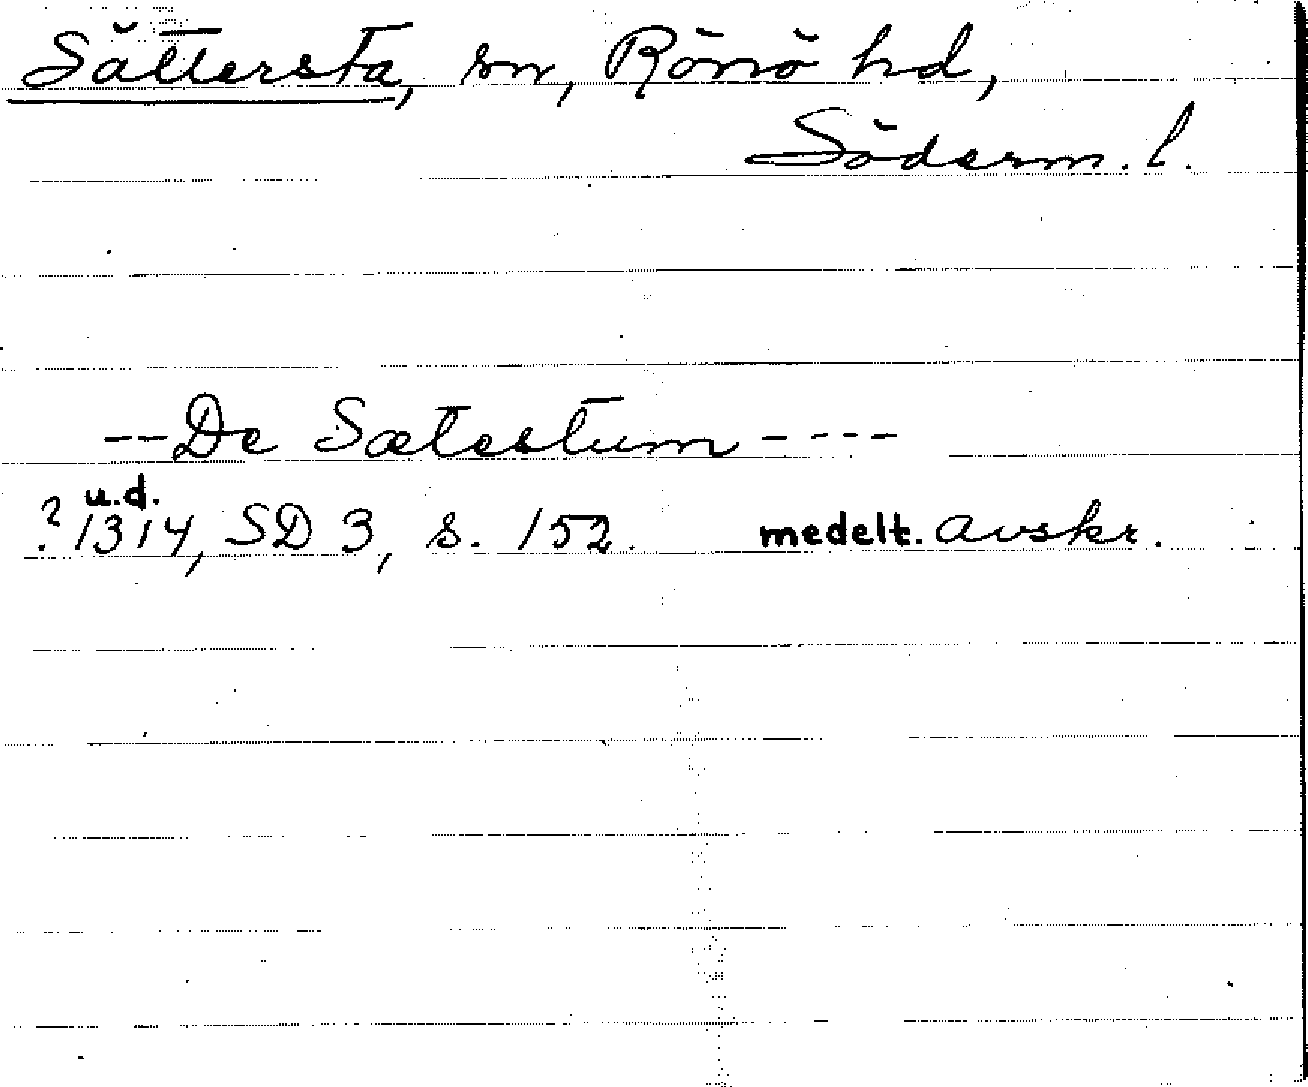 Sättersta, sn, Rönö hd,
Söderm. l.
--De Sætestum----
u.d.
? 1314, SD 3, s. 152. medelt. avskr.